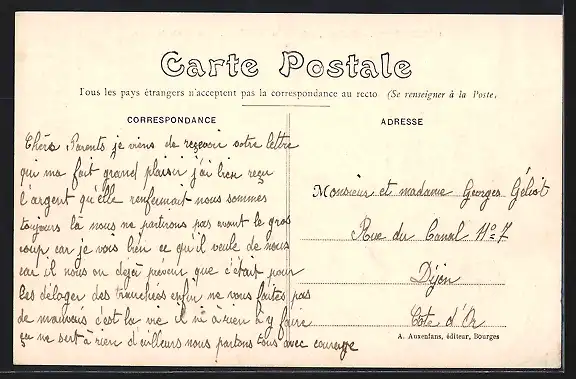 Carte Postale
Tous les pays étrangers n'acceptent pas la correspondance au recto (Se renseigner à la Poste.
CORRESPONDANCE
Chèrs Parents je viens de reçevoir votre lettre
qui ma fait grand plaisir j'ai bien reçu
l'argent qu'elle renfermait nous sommes
toujours là nous ne partirons pas avant le gros
coup car je vois bien ce qu'il veule de nous
car il nous on déjà prévenu que c'était pour
les déloger des tranchées enfin ne vous faites pas
de mauvais c'est la vie il n'à rien à y faire
ça ne sert à rien d'ailleurs nous partons tous avec courage
ADRESSE
Monsieur et madame Georges
Rue du Canal No 7
Dijon
Côte d'Or
A. Auxenfans, éditeur, Bourges